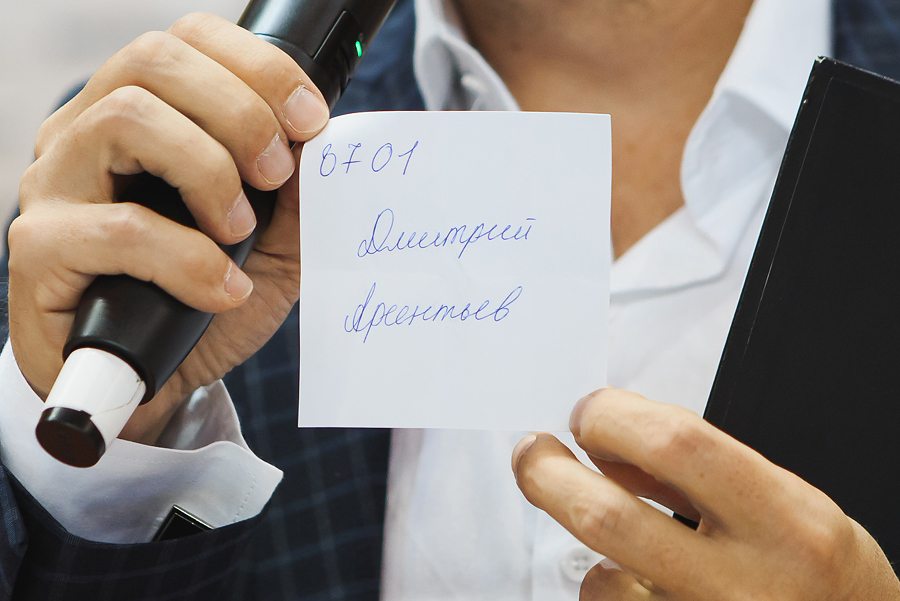 8701
Дмитрий
Арсентьев